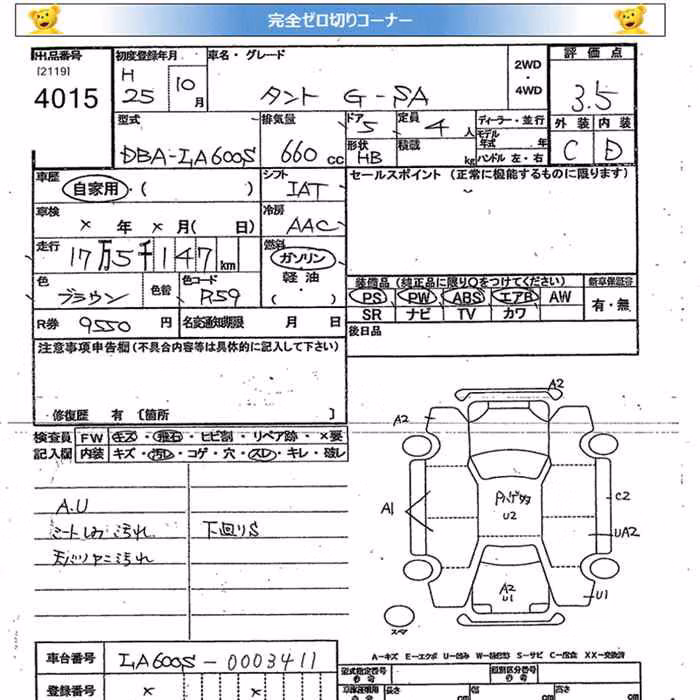 完全ゼロ切りコーナー
出品番号
[2119]
4015
初度登録年月
H 25 10月
車名・グレード
タント G-SA
2WD・4WD
評価点
3.5
外装 内装
C D
型式
DBA-LA600S
排気量
660 cc
ドア 5
形状 HB
定員 4 人
積載 kg
ディーラー・並行
モデル年式 年
ハンドル 左・右
車歴
自家用・( )
シフト
IAT
セールスポイント (正常に機能するものに限ります)
車検
× 年 × 月( 日)
冷房
AAC
走行
17万5千147km
燃料
ガソリン
軽油
( )
色
ブラウン
色替
色コード
R59
装備品 (純正品に限り○をつけてください)
PS PW ABS エアB AW
SR ナビ TV カワ
新車保証書
有・無
R券 9550 円
名変通知期限 月 日
後日品
注意事項申告欄 (不具合内容等は具体的に記入して下さい)
修復歴 有 [箇所 ]
検査員記入欄
FW キズ・飛石・ヒビ割・リペア跡・×要
内装 キズ・汚レ・コゲ・穴・スレ・キレ・破レ
A.U
シートしみ 汚れ
下回りS
天バリヤニ汚れ
A2
A2
A1
U2
C2
UA2
A2
U1
U1
スマ
A-キズ E-エクボ U-凹み W-補修跡 S-サビ C-腐食 XX-交換済
車台番号
LA600S-0003411
登録番号
× ×
型式指定番号
類別区分番号
長さ cm
幅 cm
高さ cm